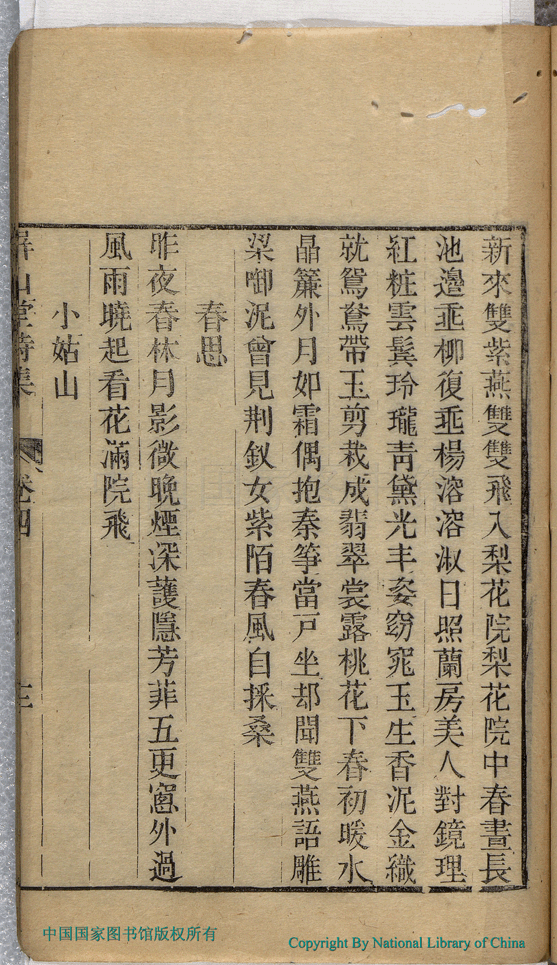 新來雙紫燕雙雙飛入梨花院梨花院中春晝長
池邊垂柳復垂楊溶溶淑日照蘭房美人對鏡理
紅粧雲鬂玲瓏靑黛光丰姿窈窕玉生香泥金織
就鴛鴦帶玉剪裁成翡翠裳露桃花下春初暖水
晶簾外月如霜偶抱秦箏當戸坐却聞雙燕語雕
梁啣泥曾見荆釵女紫陌春風自採桑
春思
昨夜春林月影微晚煙深護隱芳菲五更窻外過
風雨曉起看花滿院飛
小姑山
山堂詩集 卷四
中国国家图书馆版权所有
Copyright By National Library of China